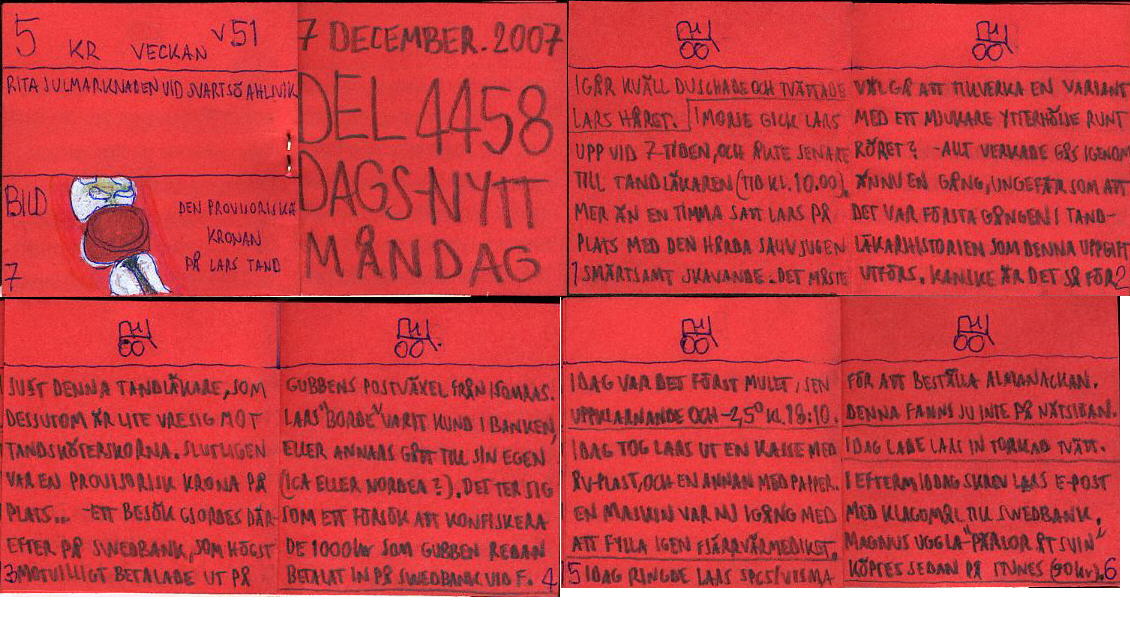 5 KR VECKAN V51
RITA JULMARKNADEN VID SVARTSÖ AHLNVIK
BILD
DEN PROVISORISKA
KRONAN
PÅ LARS TAND
7
7 DECEMBER. 2007
DEL 4458
DAGS-NYTT
MÅNDAG
IGÅR KVÄLL DUSCHADE OCH TVÄTTADE
LARS HÅRET. IMORSE GICK LARS
UPP VID 7-TIDEN, OCH ÅKTE SENARE
TILL TANDLÄKAREN (TID KL. 10.00).
MER ÄN EN TIMMA SATT LARS PÅ
PLATS MED DEN HÅRDA SALIVSUGEN
SMÄRTSAMT SKAVANDE. DET MÅSTE
1
VÄL GÅ ATT TILLVERKA EN VARIANT
MED ETT MJUKARE YTTERHÖLJE RUNT
RÖRET? -ALLT VERKADE GÅS IGENOM
ÄNNU EN GÅNG, UNGEFÄR SOM ATT
DET VAR FÖRSTA GÅNGEN I TAND-
LÄKARHISTORIEN SOM DENNA UPPGIFT
UTFÖRS. KANSKE ÄR DET SÅ FÖR
2
JUST DENNA TANDLÄKARE, SOM
DESSUTOM ÄR LITE VRESIG MOT
TANDSKÖTERSKORNA. SLUTLIGEN
VAR EN PROVISORISK KRONA PÅ
PLATS... -ETT BESÖK GJORDES DÄR-
EFTER PÅ SWEDBANK, SOM HÖGST
MOTVILLIGT BETALADE UT PÅ
3
GUBBENS POSTVÄXEL FRÅN ISOMRAS.
LARS "BORDE" VARIT KUND I BANKEN,
ELLER ANNARS GÅTT TILL SIN EGEN
(ICA ELLER NORDEA?). DET TER SIG
SOM ETT FÖRSÖK ATT KONFISKERA
DE 1000kr SOM GUBBEN REDAN
BETALAT IN PÅ SWEDBANK VID F.
4
IDAG VAR DET FÖRST MULET, SEN
UPPKLARNANDE OCH -2,5° KL. 18:10.
IDAG TOG LARS UT EN KASSE MED
ÅV-PLAST, OCH EN ANNAN MED PAPPER.
EN MASKIN VAR NU IGÅNG MED
ATT FYLLA IGEN FJÄRRVÄRMEDIKET.
IDAG RINGDE LARS SPCS/VISMA
5
FÖR ATT BESTÄLLA ALMANACKAN.
DENNA FANNS JU INTE PÅ NÄTSIDAN.
IDAG LADE LARS IN TORKAD TVÄTT.
I EFTERMIDDAG SKREV LARS E-POST
MED KLAGOMÅL TILL SWEDBANK.
MAGNUS UGGLA-"PÄRLOR ÅT SVIN"
KÖPTES SEDAN PÅ ITUNES (90kr).
6